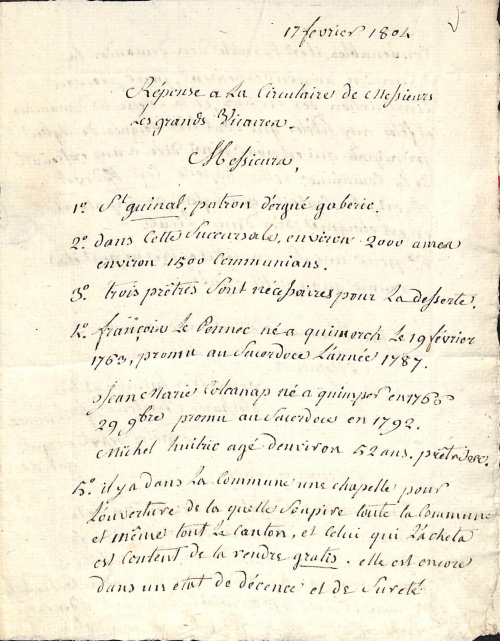 17 fevrier 1804
Réponse a La Circulaire de Messieurs
Les grands Vicaires.
Messieurs,
1º. St guinal, patron d'ergué gaberic.
2º. dans Cette Succursale, environ 2000 ames
environ 1500 Communians.
3º. trois prêtres Sont nécessaires pour La desserte.
4º. françois Le Pennec né a quimerch Le 19 février
1763, promu au Sacerdoce L'année 1787.
Jean Marie Colcanap né a quimper en
29 9bre promu au Sacerdoce en 1792.
Michel huitric agé d'environ 52 ans.
5º. il y a dans La Commune une chapelle pour
L'ouverture de la quelle Soupire toute la Commune
et même tout Le Canton, et Celui qui L'acheta
est Content de la rendre gratis. elle est encore
dans un état de décence et de Sureté